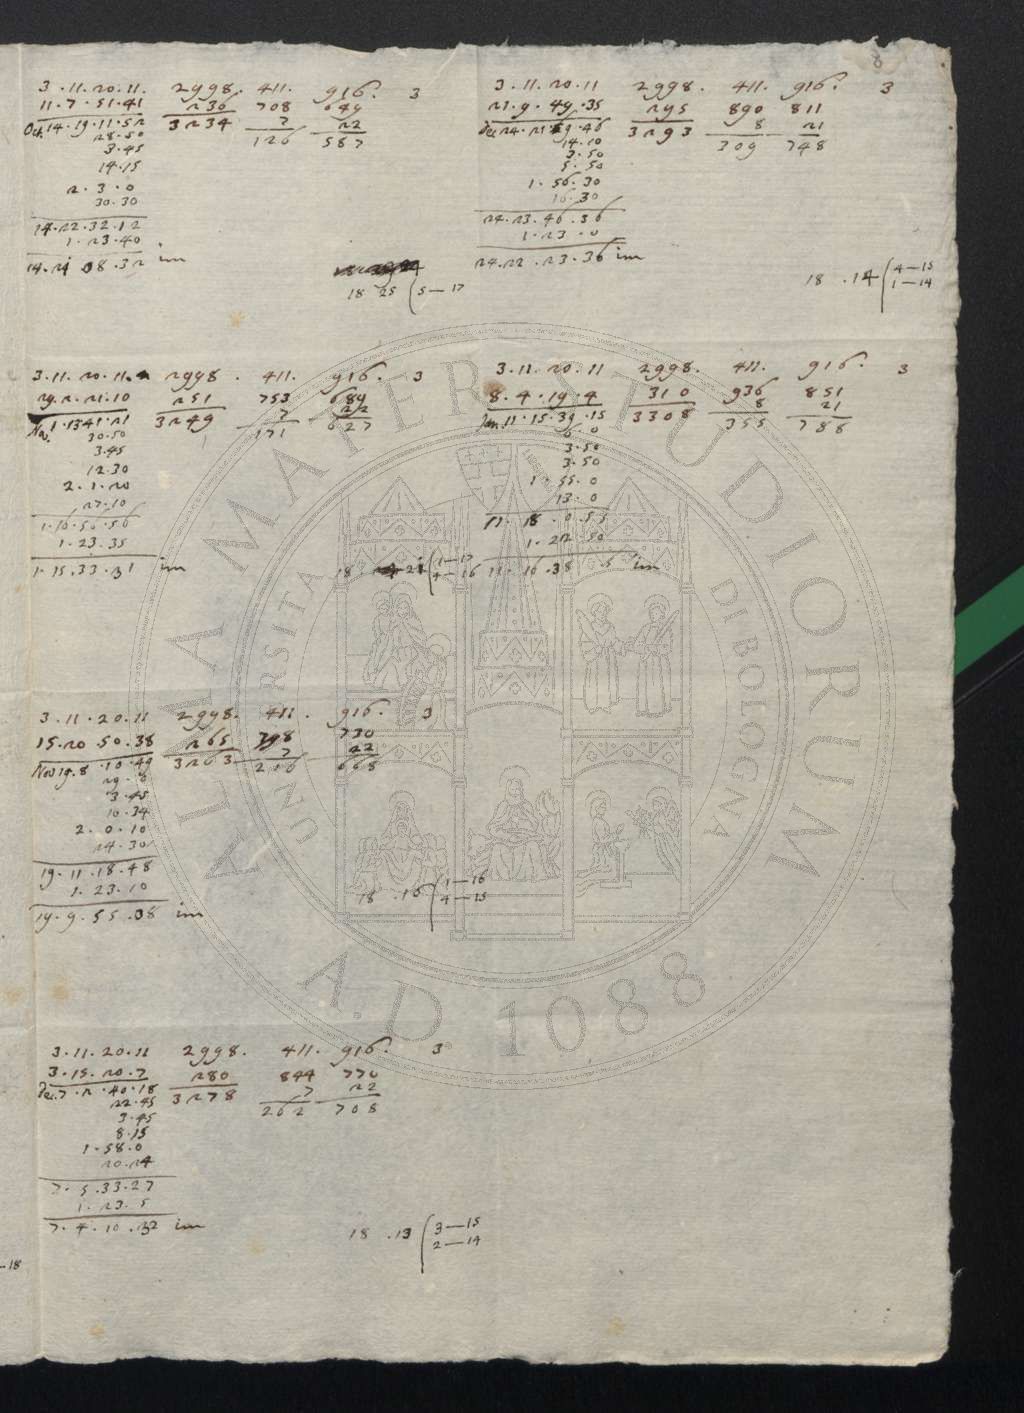 8
3 . 11 . 20 . 11. 2998. 411. 916. 3
11 . 7 . 51 . 41 236 708 649
Oct. 14 . 19 . 11 . 52 3234 7 22
28 . 50 126 587
3 . 45
14 . 15
2 . 3 . 0
30 . 30
14 . 22 . 32 . 12
1 . 23 . 40
14 . 21 08 . 32 im
18 25 5 — 17
3 . 11 . 20 . 11 2998. 411. 916. 3
21 . 9 . 49 . 35 295 890 811
Dec 24 . 21 . 9 . 46 3293 8 21
14 . 10 309 748
3 . 50
5 . 50
1 . 56 . 30
16 . 30
24 . 23 . 46 . 36
1 . 23 . 0
24 . 22 . 23 . 36 im
18 . 14 4 — 15
1 — 14
3 . 11 . 20 . 11. 2998. 411. 916. 3
29 . 2 . 21 . 10 251 753 689
Nov. 1 . 13 41 . 21 3249 7 22
30 . 50 171 627
3 . 45
12 . 30
2 . 1 . 20
27 . 10
1 . 16 . 56 . 56
1 . 23 . 35
1 . 15 . 33 . 21 im
18 21 1 — 17
4 — 16
3 . 11 . 20 . 11 2998. 411. 916. 3
8 . 4 . 19 . 4 310 936 851
Jan. 11 . 15 . 39 . 15 3308 8 21
6 . 0 355 788
3 . 50
3 . 50
1 . 55 . 0
13 . 0
11 . 18 . 0 . 55
1 . 22 50
11 . 16 . 38 . 5 im
3 . 11 . 20 . 11 2998. 411. 916. 3
15 . 20 50 . 38 265 798 730
Nov 19 . 8 . 10 . 49 3263 7 22
29 . 0 216 668
3 . 45
10 . 34
2 . 0 . 10
24 . 30
19 . 11 . 18 . 48
1 . 23 . 10
19 . 9 . 55 . 38 im
18 . 16 1 — 16
4 — 15
3 . 11 . 20 . 11 2998. 411. 916. 3
3 . 15 . 20 . 7 280 844 770
Dec. 7 . 2 . 40 . 18 3278 7 22
22 . 45 262 708
3 . 45
8 . 15
1 . 58 . 0
20 . 24
7 . 5 . 33 . 27
1 . 23 . 5
7 . 4 . 10 . 32 im
18 . 13 3 — 15
2 — 14
— 18
ALMA MATER STUDIORUM
UNIVERSITÀ DI BOLOGNA
A.D. 1088